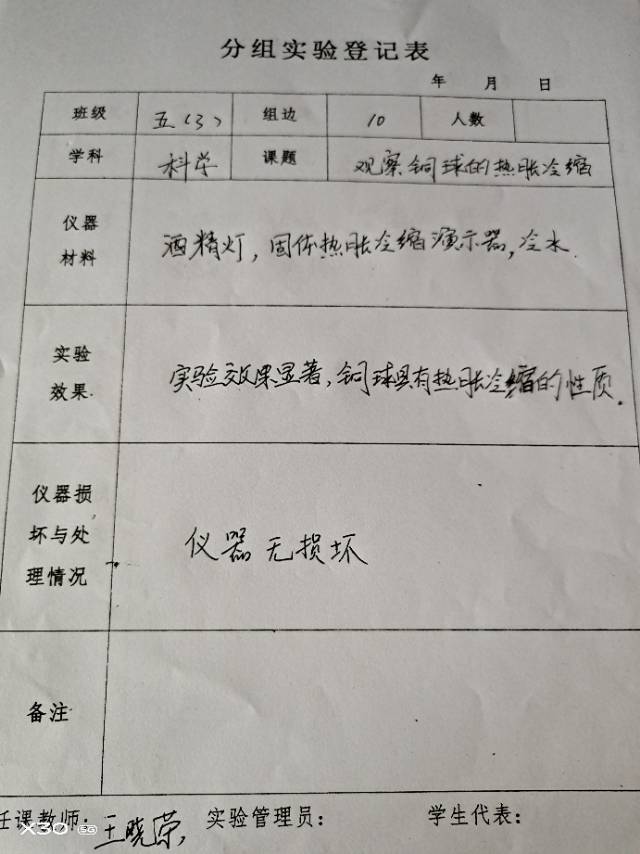 分组实验登记表
年 月 日
班级 五(3) 组边 10 人数
学科 科学 课题 观察铜球的热胀冷缩
仪器
材料
酒精灯,固体热胀冷缩演示器,冷水.
实验
效果.
实验效果显著,铜球具有热胀冷缩的性质.
仪器损
坏与处
理情况
仪器无损坏
备注
任课教师:王晓荣 实验管理员: 学生代表:
X30 5G